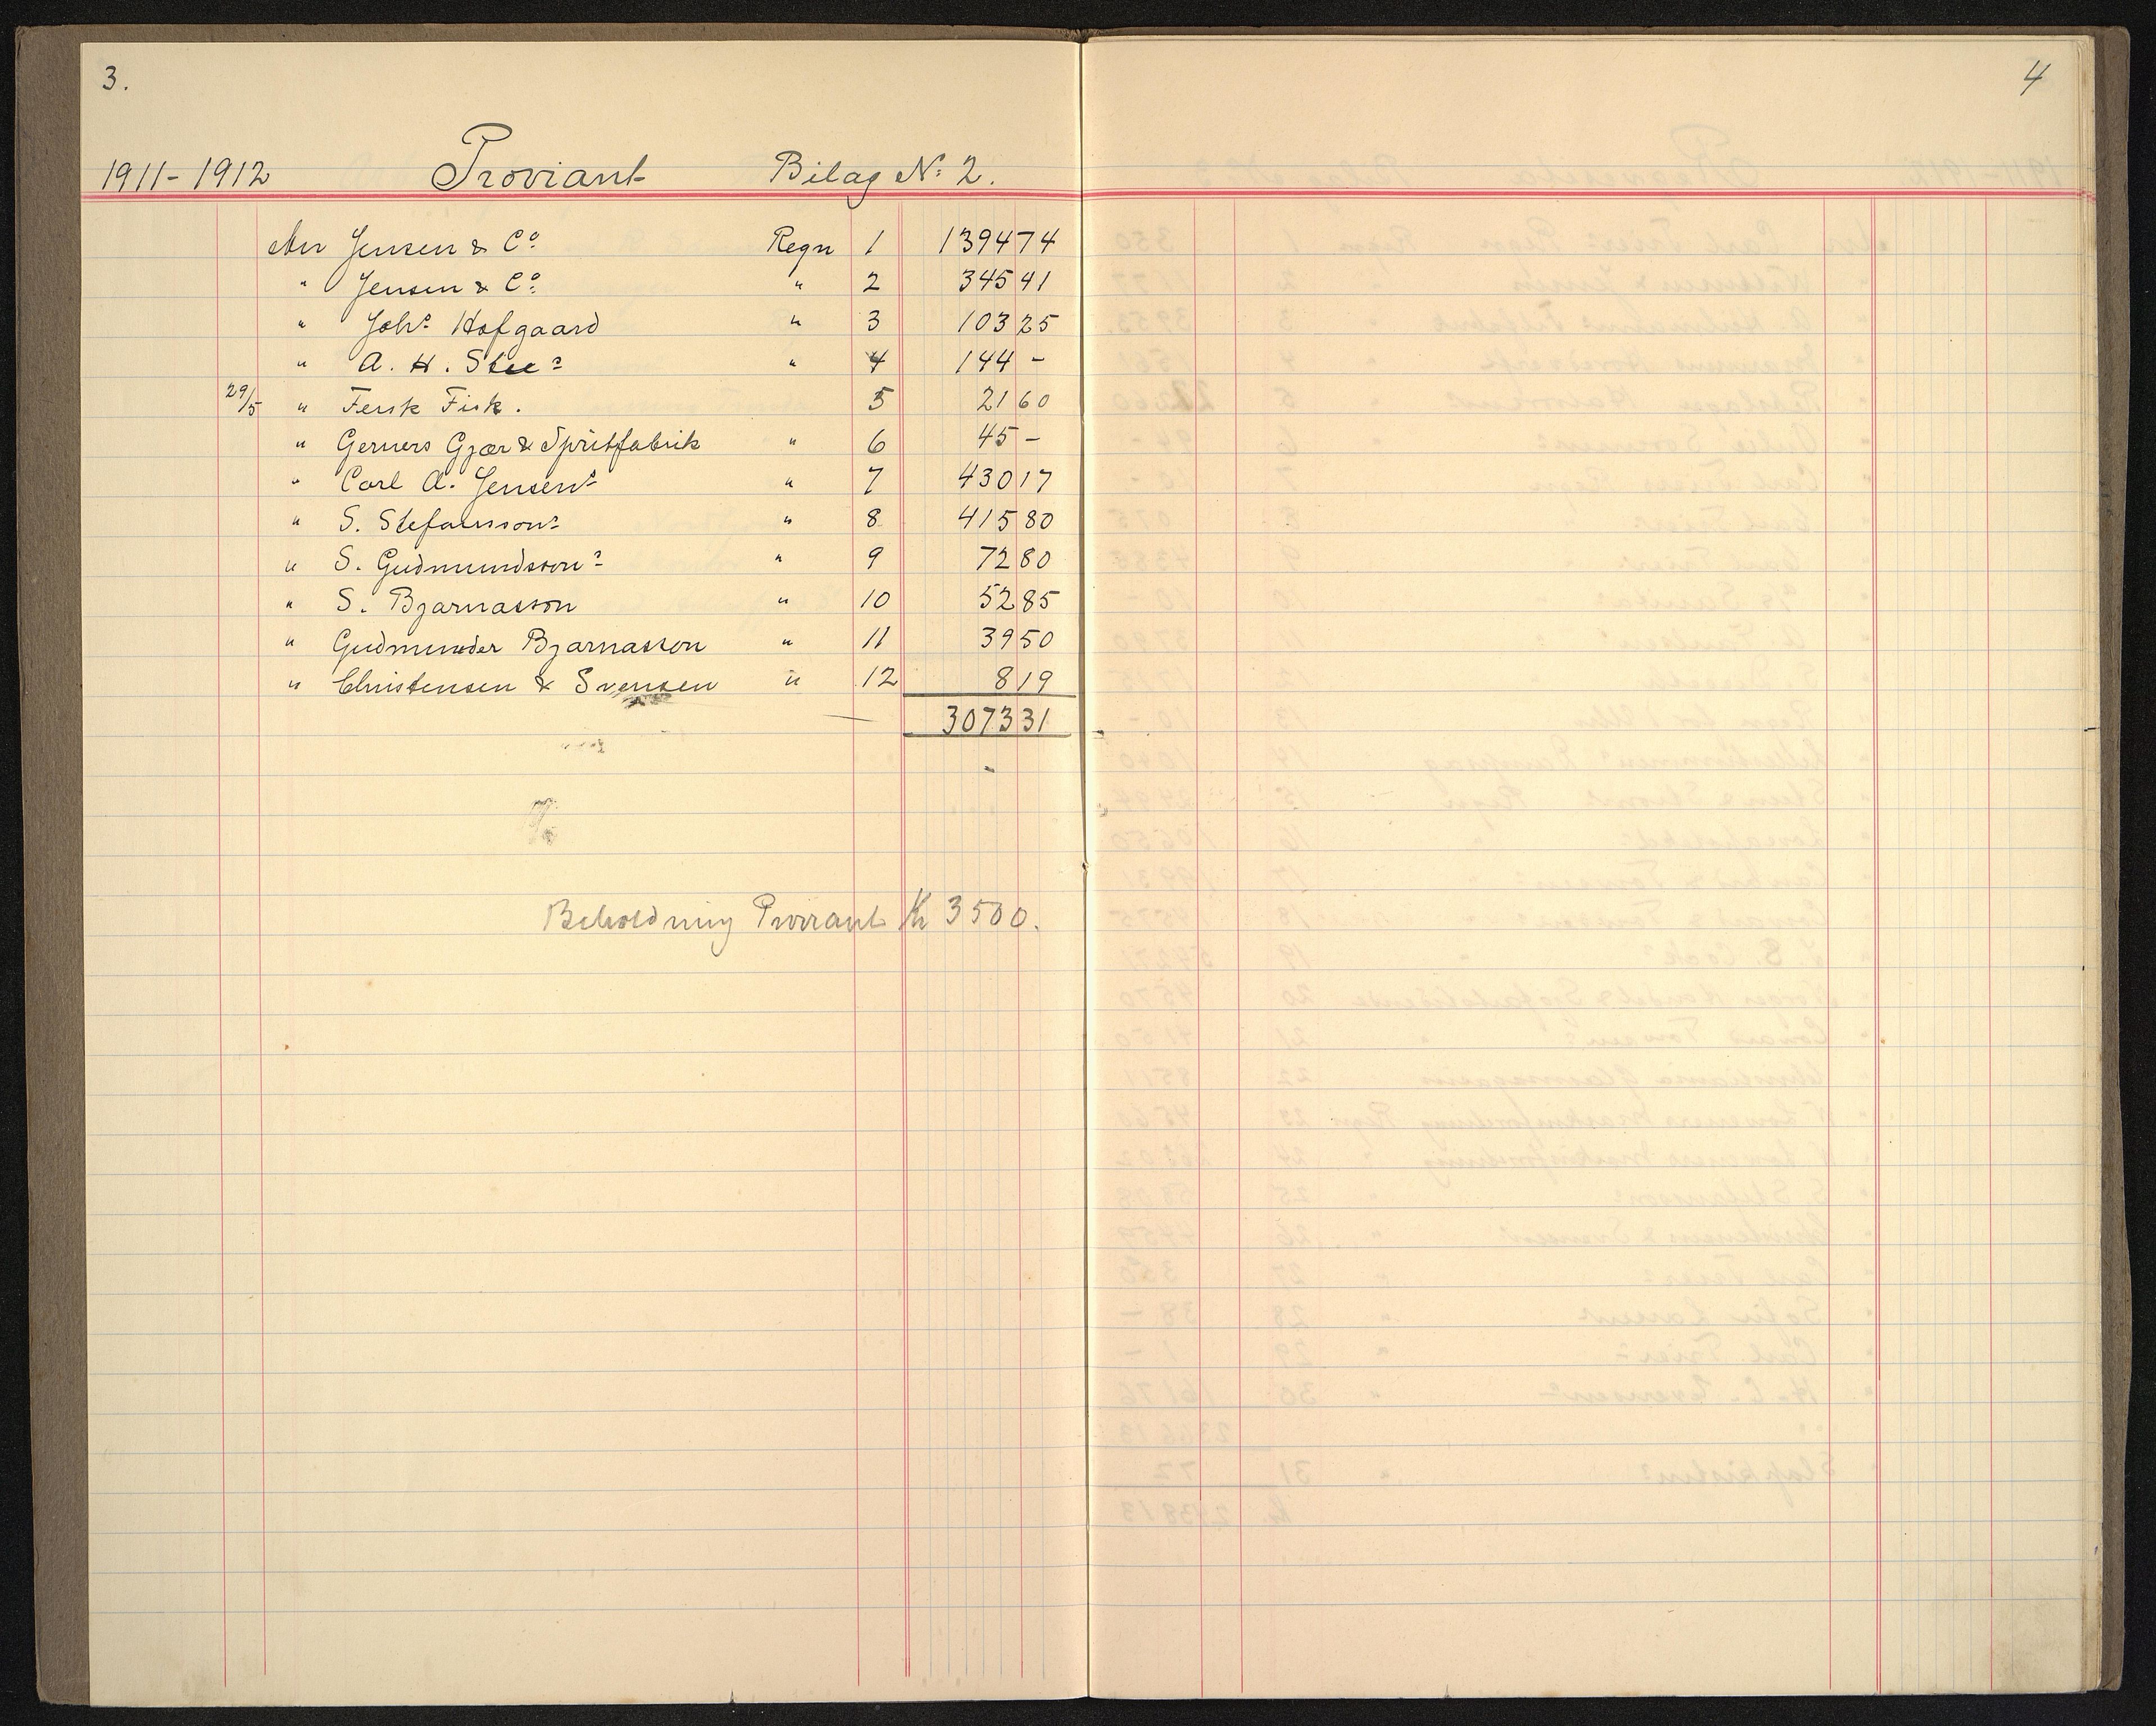 3.
4
1911-1912 Proviant Bilag No 2.
An Jensen & Co. Regn 1 1394 74
" Jensen & Co. " 2 345 41
" Johs. Hofgaard " 3 103 25
" A. H. " 4 144 -
29/5 " Fersk Fisk. 5 21 60
" Gerners Gjær & Spritfabrik " 6 45 -
" Carl A. Jensens " 7 430 17
" S. Stefanssons " 8 415 80
" S. Gudmundssons " 9 72 80
" S. Bjarnasson " 10 52 85
" Gudmunder Bjarnasson " 11 39 50
" Christensen & Svensen " 12 8 19
3073 31
Beholdning Proviant Kr 3500.